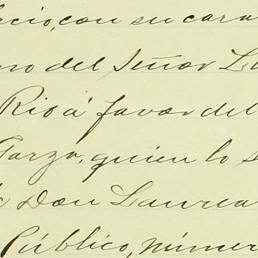 cio, con su cara
no del Señor La
Rio á favor del
Garza, quien lo s
Don Laurea
Público, númer